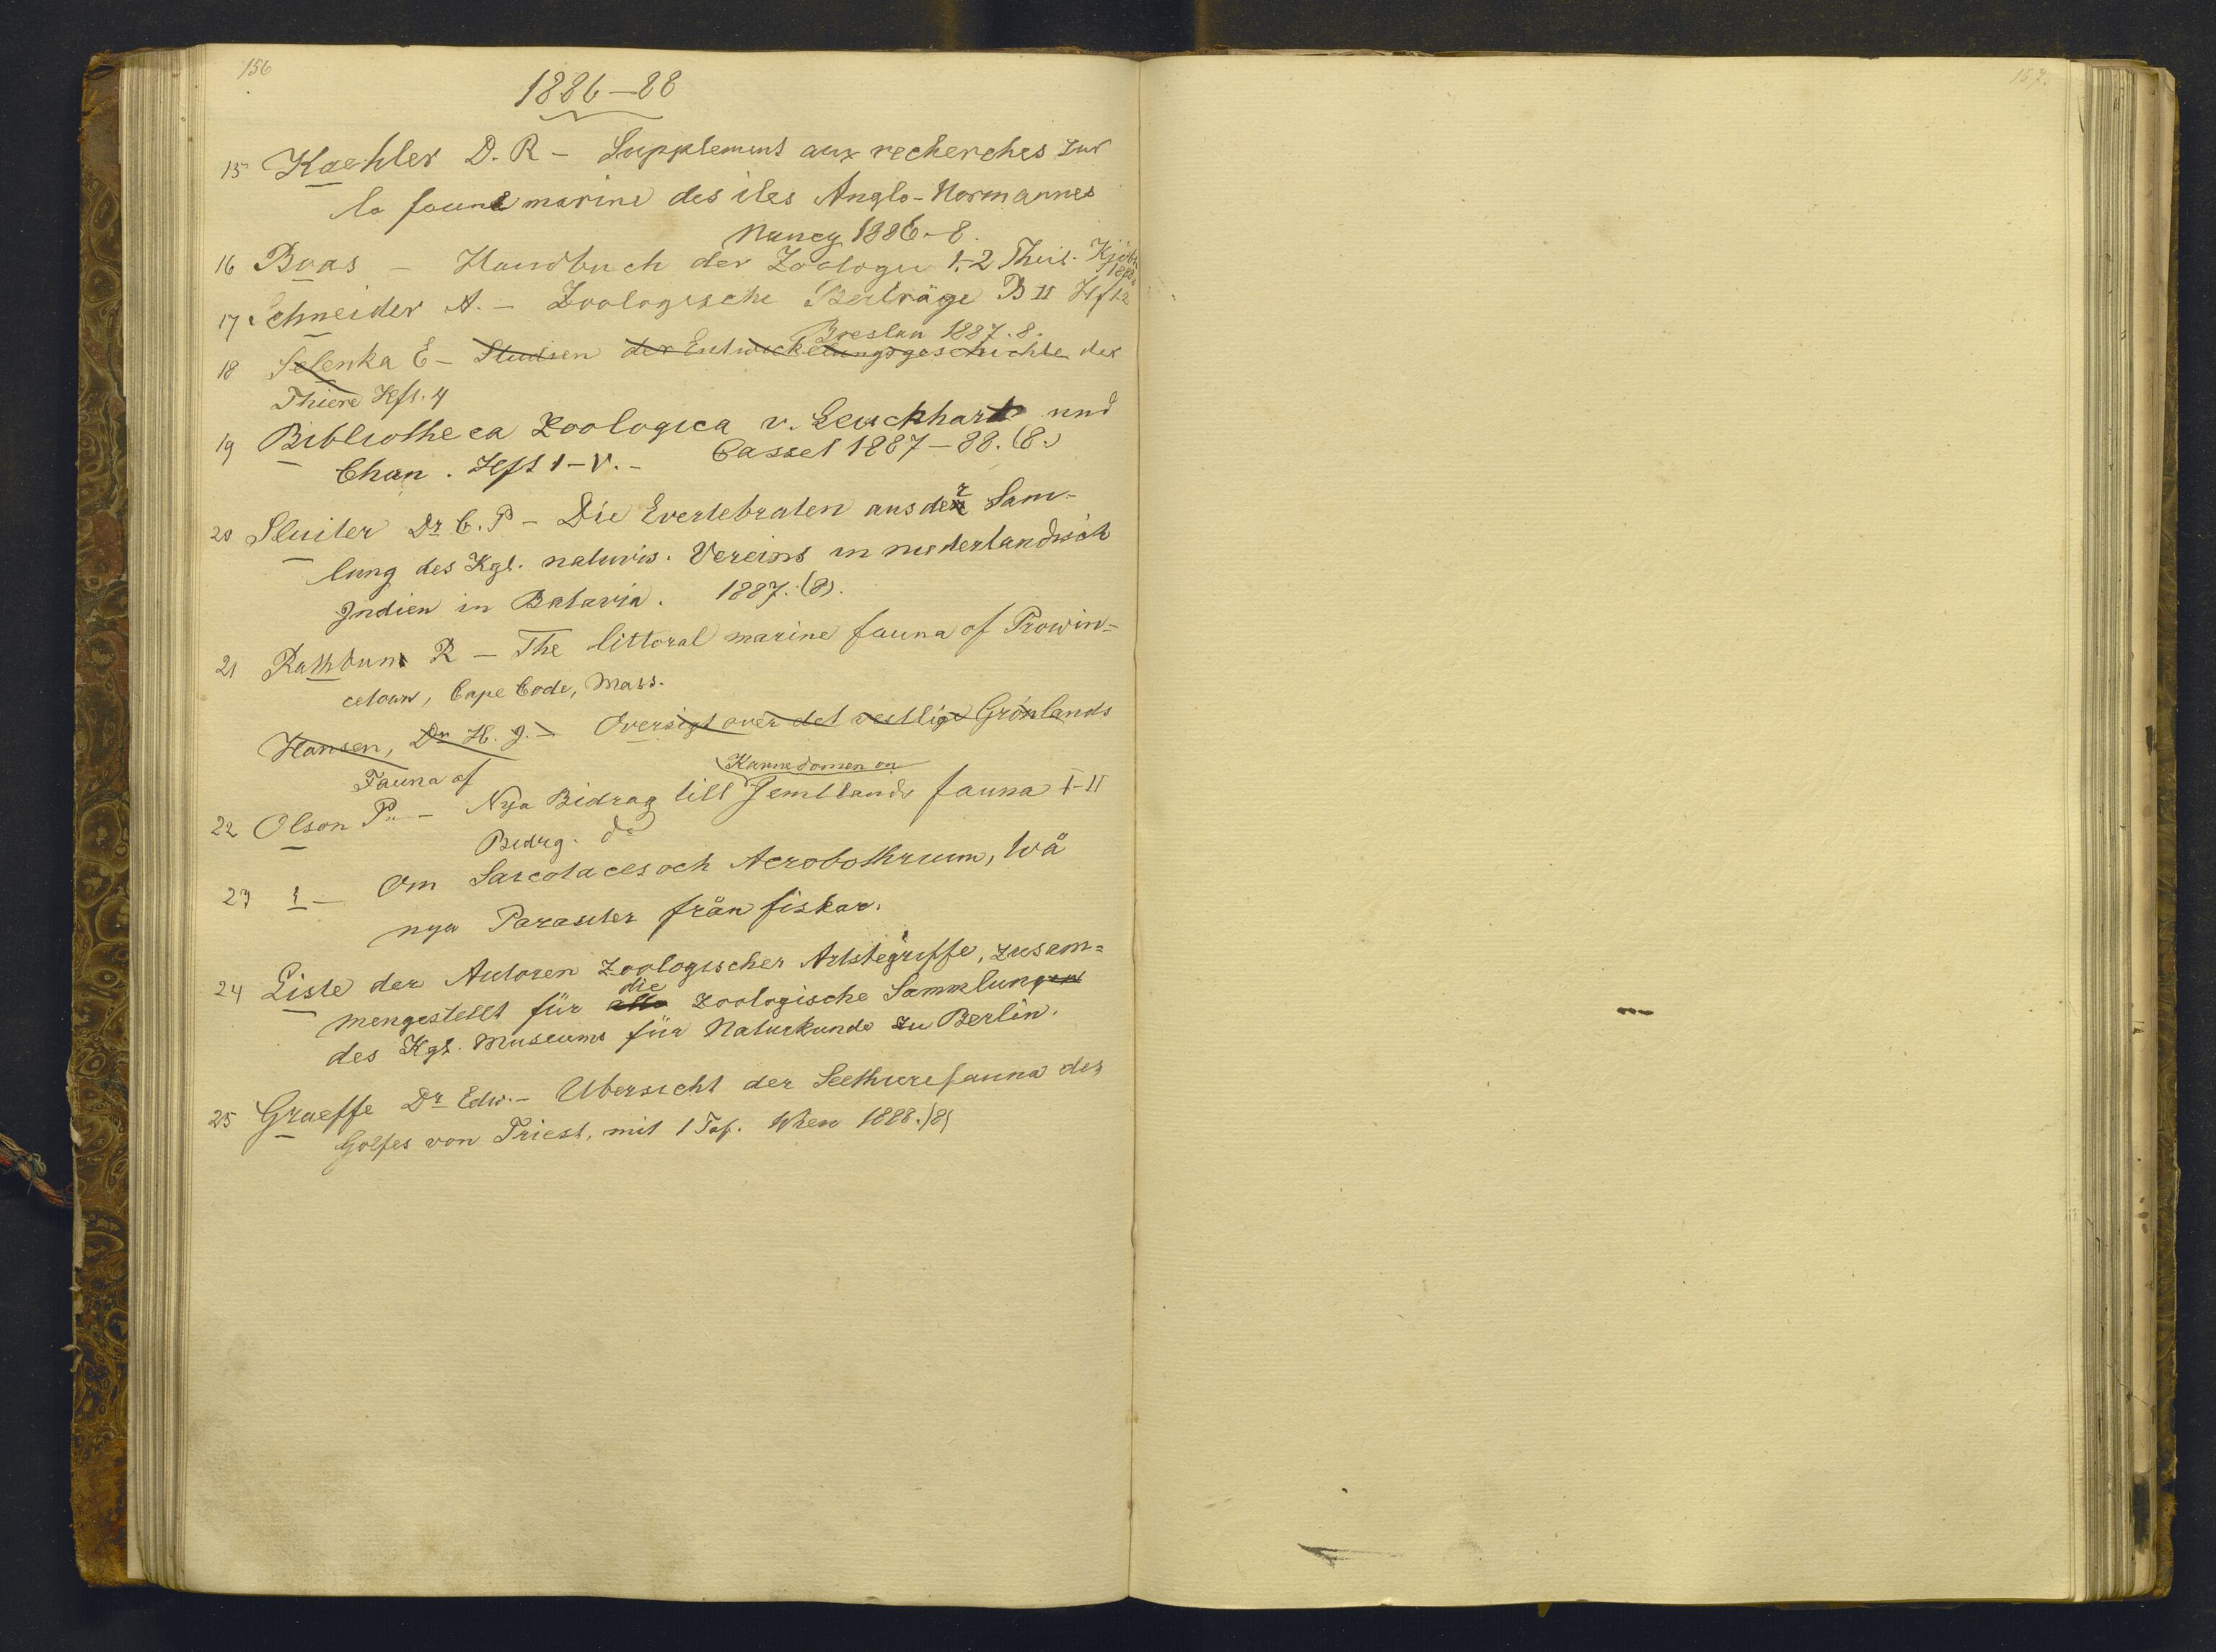 156
1886-88
15 Koehler D. R - Supplement aux recherches sur
la faune marine des iles Anglo-Normannes
Nancy 1886.-8.
16 Boas - Handbuch der Zoologie 1.-2 Theil. Kjöbh
1888
17 Schneider A. - Zoologische Beiträge B II Hft 2
Breslau 1887. 8.
18 Selenka E - Studien der Entwickelungsgeschichte der
Thiere Hft. 4
19 Bibliotheca Zoologica v. Leuckhart und
Chun. Hft 1-V. - Cassel 1887-88. (8.)
20 Sluiter Dr C. P - Die Evertebraten aus der Sam-
lung des Kgl. naturw. Vereins in niederlandisch
Indien in Batavia. 1887. (8).
21 Rathbun R - The littoral marine fauna of Prowin=
cetown, Cape Code, Mass.
Hansen, Dr H. J. - Oversigt over det vestlige Grönlands
Fauna af
22 Olson P. - Nya Bidrag till Jemtlands fauna I-II
Bidrg. do
23 Om Sarcotaces och Acrobothrium, två
nya Parasiter från fiskar.
24 Liste der Autoren zoologischer Artbegriffe, zusam=
mengestellt für die zoologische Sammlungen
des Kgl. Museums für Naturkunde zu Berlin.
25 Graeffe Dr Edw. - Ubersicht der Seethierefauna des
Golfes von Triest, mit 1 Taf. Wien 1888. (8)
157.